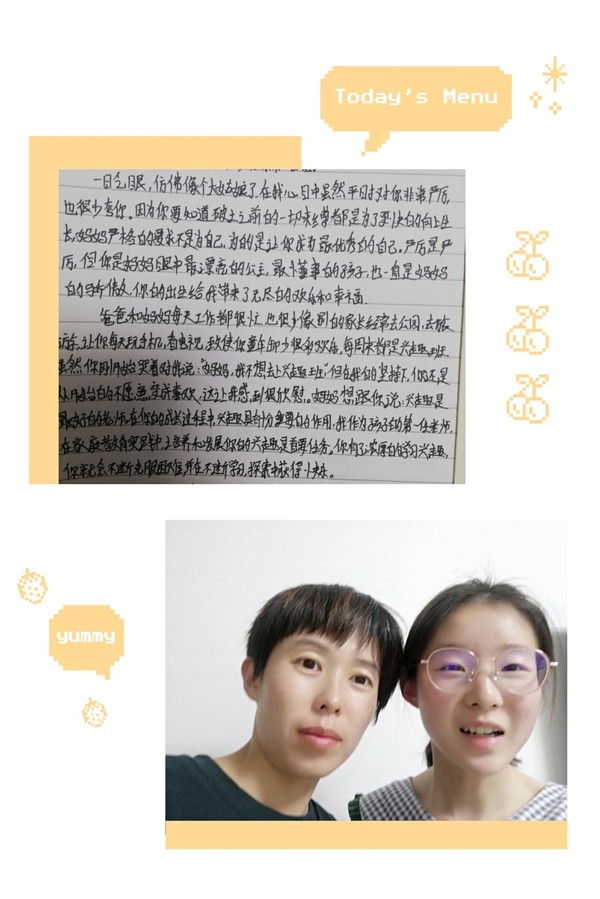 Today's Menu
一日之眼，仿佛像个大姑娘了，在我心目中虽然平日对你非常严厉，
也很少夸你。因为你要知道破土之前的一切束缚都是为了更快的向上生
长，妈妈严格的要求不是为自己，为的是让你成为最优秀的自己。严厉是严
厉，但你是妈妈眼中最漂亮的公主，最懂事的孩子，也一直是妈妈
的，你的出生给我带来了无尽的欢乐和幸福。
爸爸和妈妈每天工作都很忙，也很少像别的家长经常去公园，去旅
游，让你每天玩手机，看电视，致使你童年缺少很多欢乐，每周末都是兴趣班，
虽然你刚开始哭着对我说：“妈妈，我不想去上兴趣班”，但在我的坚持下，你还是
从开始的不愿意变成喜欢，这让我感到很欣慰。妈妈想跟你说：兴趣是
最好的老师，在你的成长过程中兴趣具有十分重要的作用，我作为孩子的第一任老师，
在家庭教育实践中，培养和发展你的兴趣是首要任务。你有了浓厚的学习兴趣，
你就会不断克服困难，并在不断学习，探索中获得快乐。
yummy